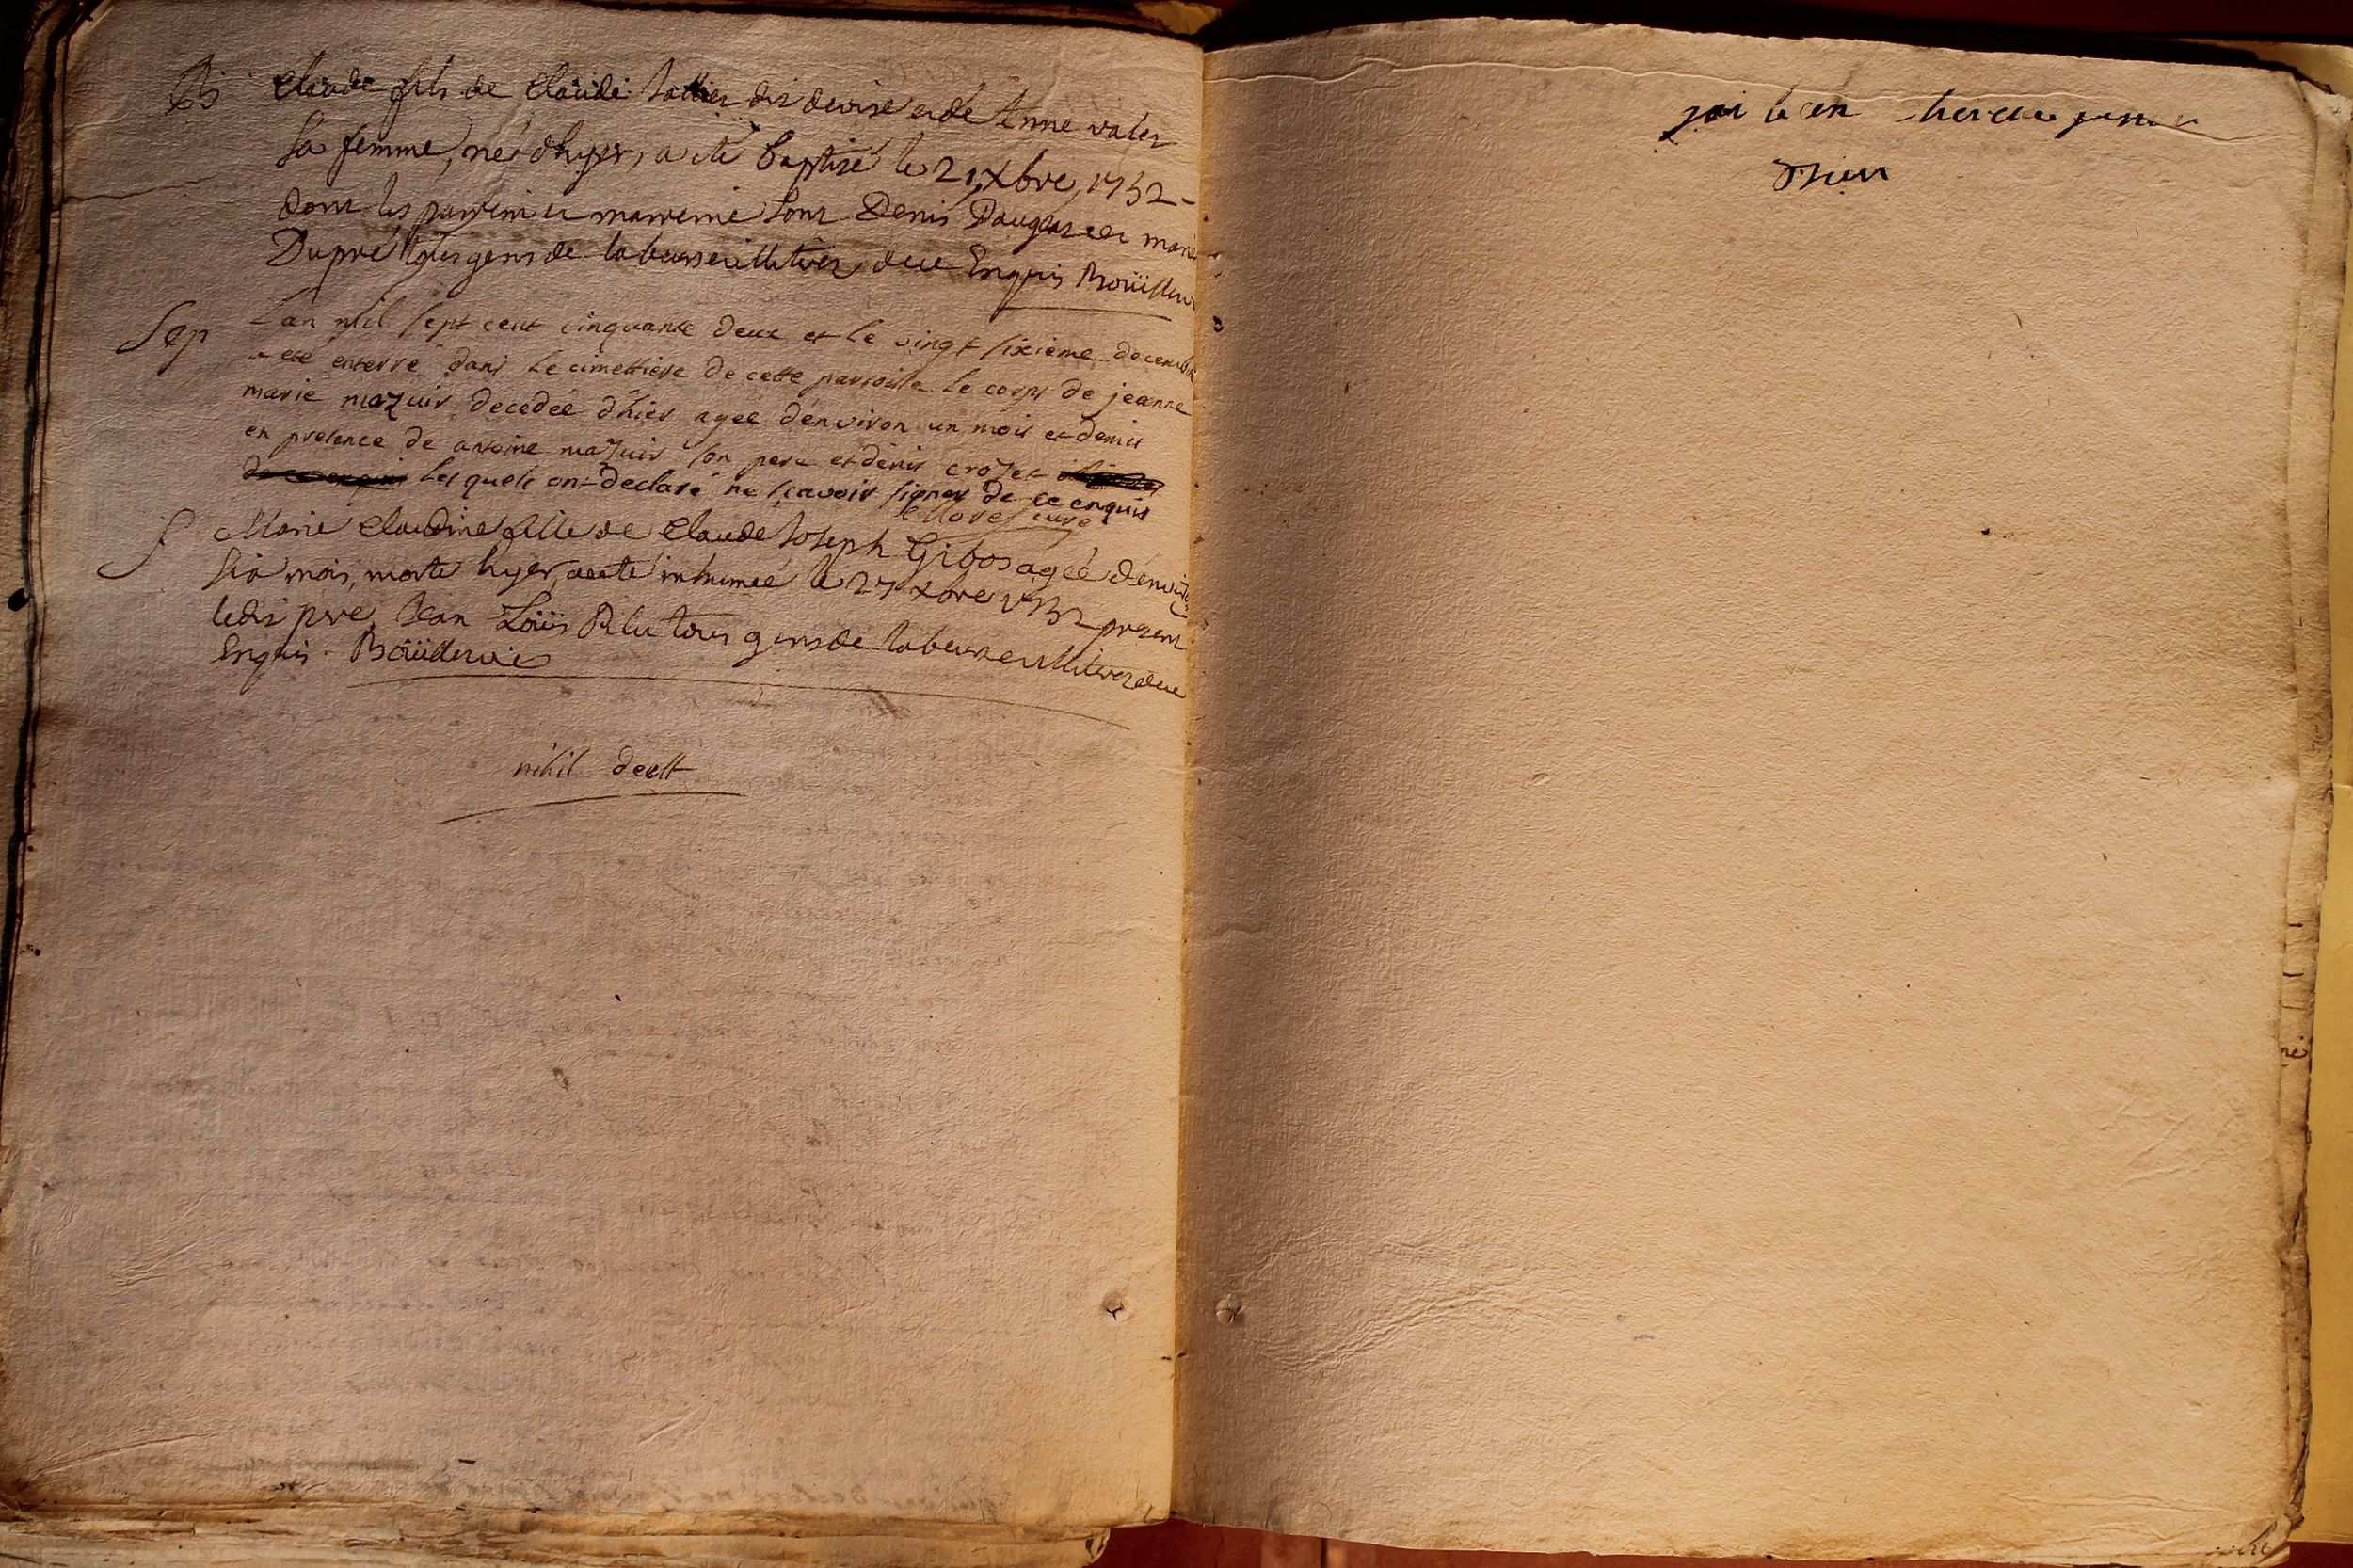 B
Claude fils de Claüde dit et de Anne
sa femme, né d'hyer, a été baptisé le 21 xbre 1752
dont les parrein et marreine sont Denis et marie
Dupré tous gens de labeur et illiterez de ce Enquis
Sep
L'an mil sept cent cinquante deux et le vingt sixieme decembre
a eté enterré dans le cimettiere de cette parroisse le corps de jeanne
marie mazuir decedée d'hier ageé d'environ un mois et demis
en presence de antoine mazuir son pere et denis crozet
les quels ont declaré ne scavoir signer de ce enquis
curé
S
Marie Claudine fille de Claude Joseph Gibos ageé d'environ
six mois, morte hyer, a eté inhumeé le 27 xbre 1752 present
ledit pere, Jean Loüis tous gens de labeur et illiterez de ce
Enquis
nihil deest
jai bien
Rien